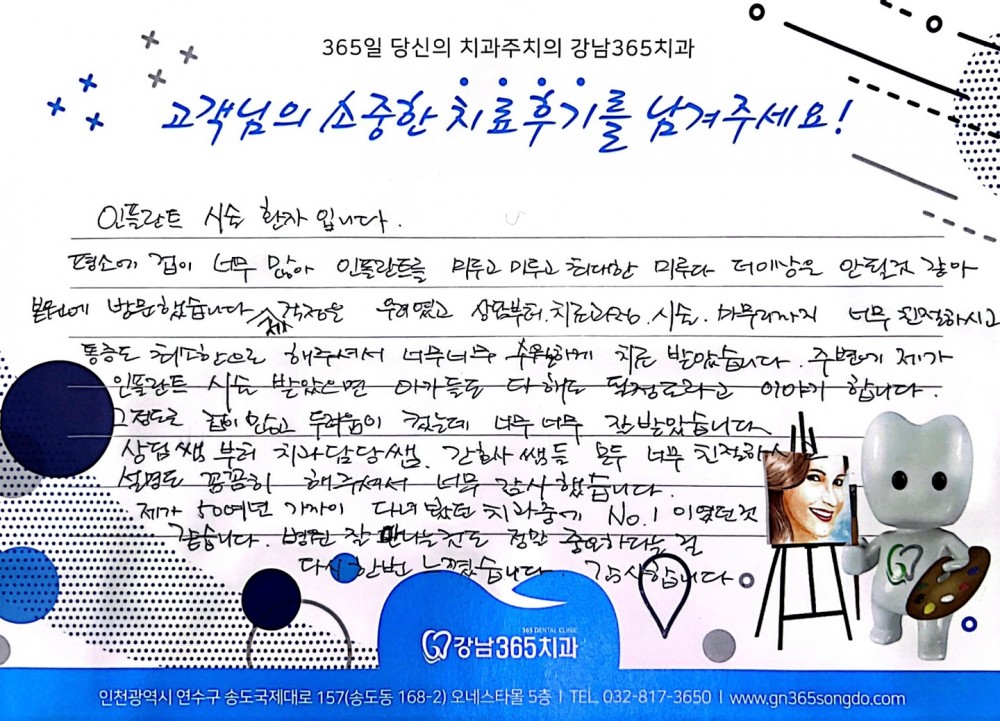 365일 당신의 치과주치의 강남365치과
고객님의 소중한 치료후기를 남겨주세요!
인플란트 시술 환자입니다.
평소에 겁이 너무 많아 인플란트를 미루고 미루고 최대한 미루다 더이상은 안될것 같아
본원에 방문했습니다. 제 걱정은 우려였고 상담부터. 치료과정. 시술. 마무리까지 너무 친절하시고
통증도 최소한으로 해주셔서 너무너무 수월하게 치료 받았습니다. 주변에 제가
인플란트 시술 받았으면 아가들도 다 해도 될정도라고 이야기 합니다.
그정도로 겁이 많고 두려움이 컸는데 너무 너무 잘 받았습니다.
상담쌤 부터 치과담당쌤. 간호사 쌤들 모두 너무 친절하시고
설명도 꼼꼼히 해주셔서 너무 감사했습니다.
제가 50여년 가까이 다녀 봤던 치과중에 No.1 이였던것
같습니다. 병원 잘 만나는것도 정말 중요하다는 걸
다시 한번 느꼈습니다. 감사합니다
365 DENTAL CLINIC
강남365치과
인천광역시 연수구 송도국제대로 157(송도동 168-2) 오네스타몰 5층 | TEL. 032-817-3650 | www.gn365songdo.com